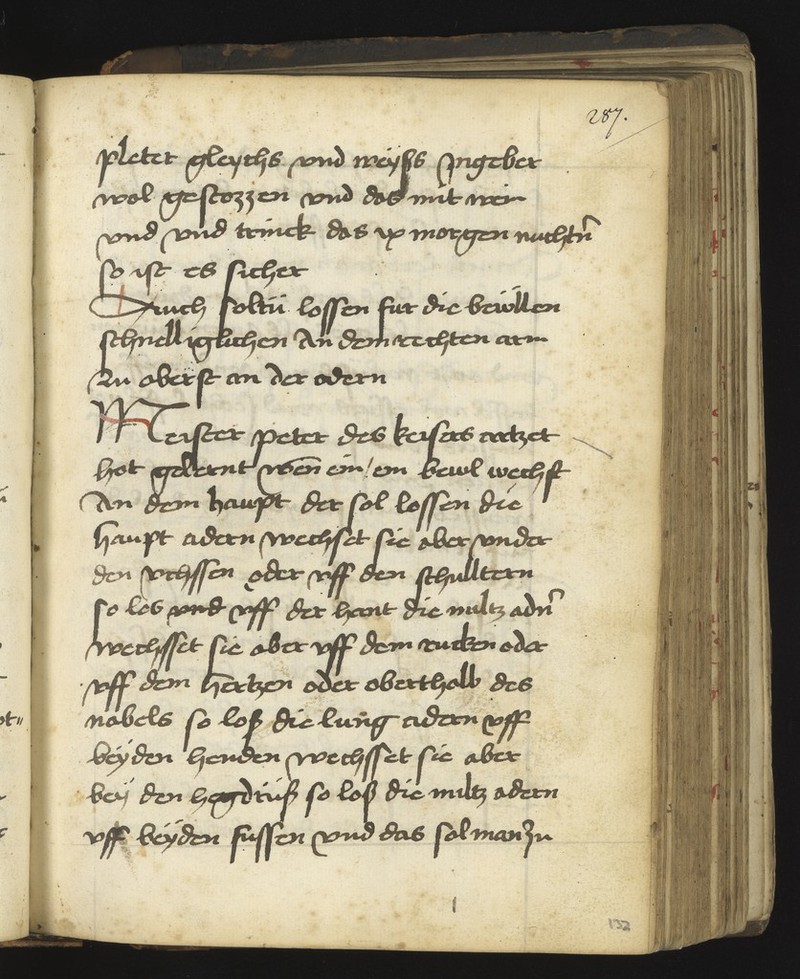 287.
pleter gleychs vnd weyss Jngeber
wol gestozzen vnd das mit wein
vnd vnd trinck das ix morgen nuchtn̄
so ist es sicher
Auch soltu lossen fur die bewllen
schnelliglichen An dem rechten arm
zu oberst an der odern
Meister peter des keisers artzet
hot gelernt wen̄ ein / ein bewl wechst
An dem haupt der sol lossen die
haupt adern wechset sie aber vnder
den vchssen oder vff den schulltern
so los vnd vff der hant die miltz adn̄
wechsset sie aber vff dem rucken oder
vff dem hertzen oder oberthalb des
nabels so loß die lung adern vff
beyden henden wechsset sie aber
bey den hegdruß so loß die miltz adern
vff beyden fussen vnd das sol man zu
132